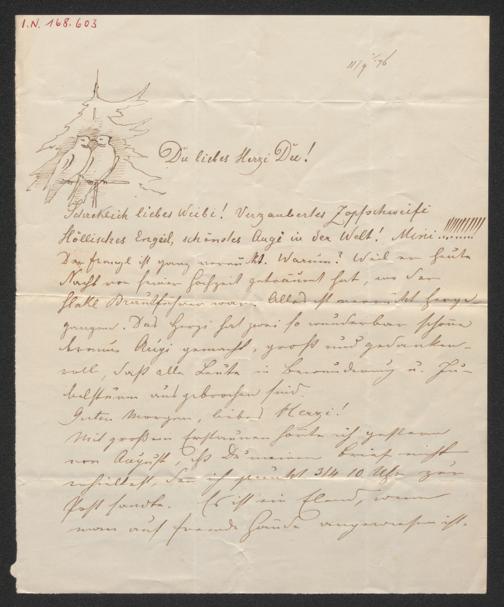 I.N. 168.603
11/9 76
Du liebes Herzi Du!
Schrecklich liebes Weibi! Verzaubertes Zopfschweifi
Höllisches Engerl, schönstes Augi in der Welt! Mini!!!!!!!!
Der franzl ist ganz verrückt. Warum? Weil er heute
Nacht von seiner Hochzeit geträumt hat, wo der
Brautführer war. Alles ist verrückt herge
gangen. Das Herzi hat zwei so wunderbar schöne
braune Augi gemacht, groß und gedanken-
voll, daß alle Leute in Bewunderung u. Ju-
belsturm ausgebrochen sind.
Guten Morgen, liebes Herzi!
Mit großem Erstaunen hörte ich gestern
von August, daß Du meinen Brief nicht
erhieltest, den ich 3/4 10 Uhr zur
Post sandte. Es ist ein Elend, wenn
man auf fremde Hände angewiesen ist.